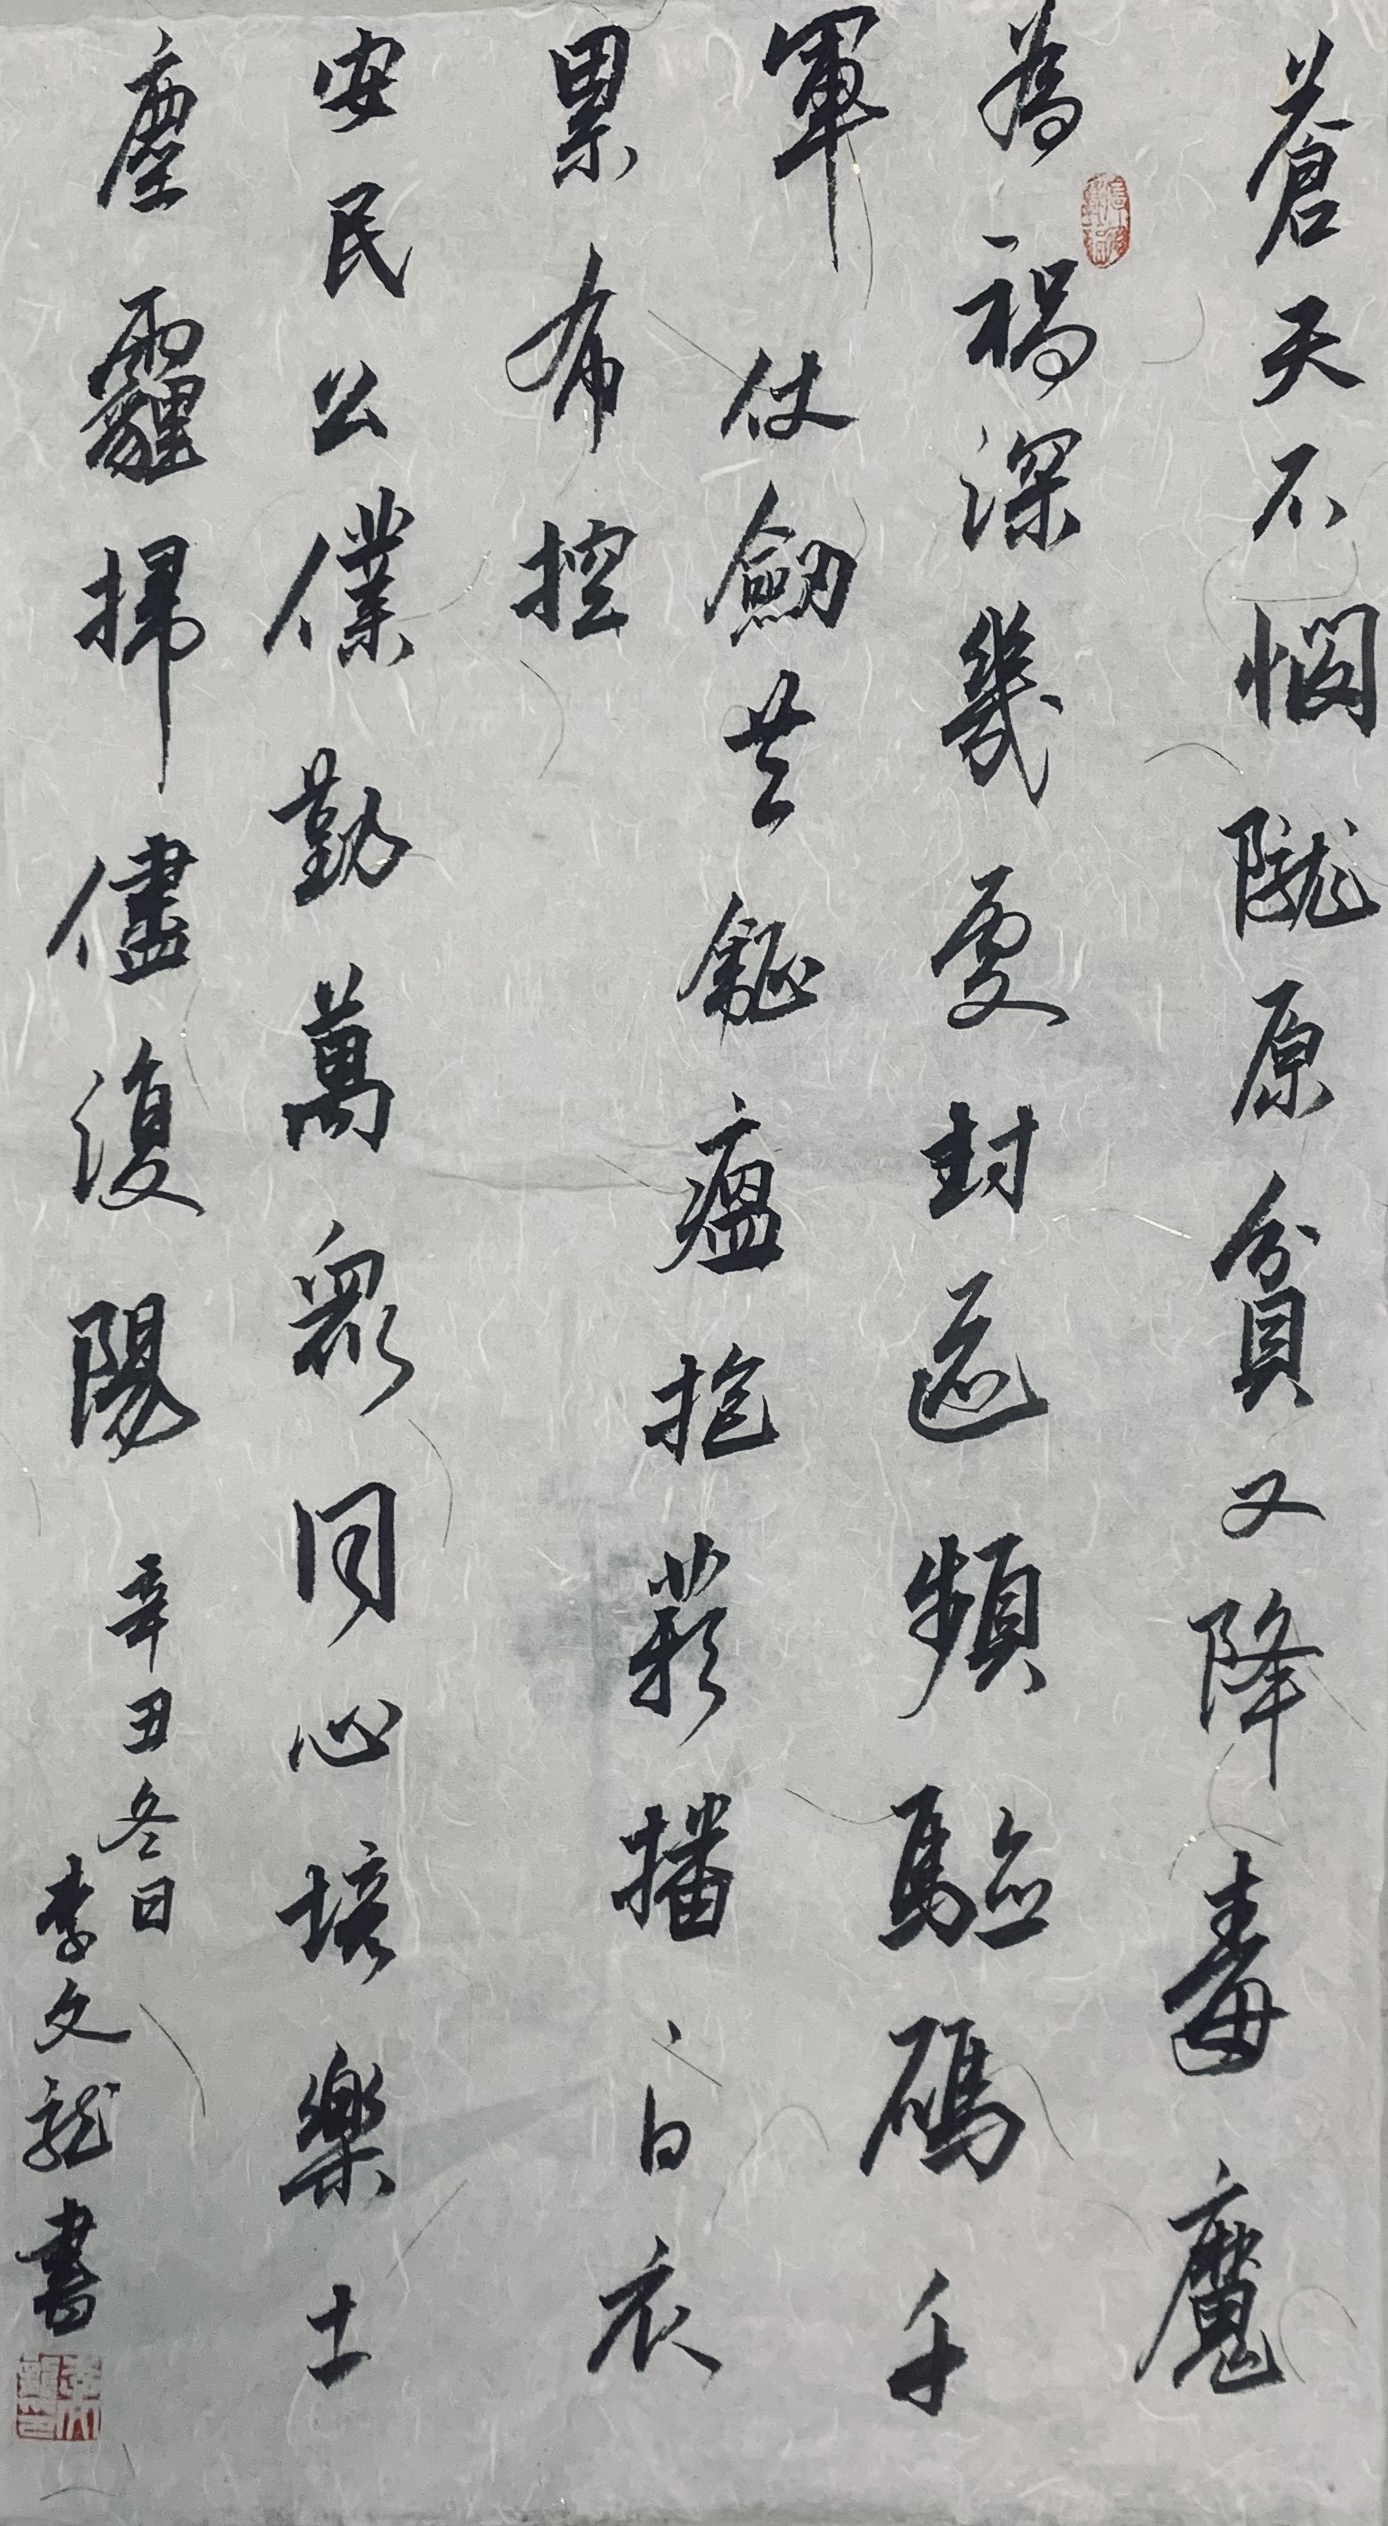 蒼天不憫隴原貧又降毒魔
為禍深幾處封區頻驗碼千
軍仗劒共征瘟抱薪播火白衣
累布控
安民公僕勤萬眾同心培樂土
塵霾掃儘復陽
辛丑冬日
李文龍書